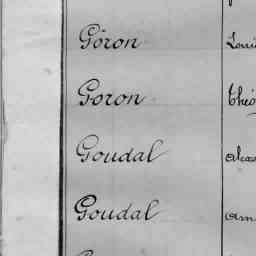 Goron Loui
Goron Théo
Goudal
Goudal Am